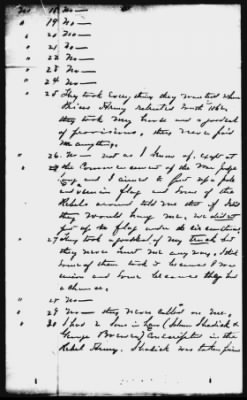 No 18 No —
" 19 No —
" 20 No —
" 21 No —
" 22 No —
" 23 No —
" 24 No —
" 25 They took everything they wanted when
Army retreated North 1862
they took my horse and a good deal
of provisions. they never paid
me anything.
" 26 No — not as I know of, except at
the commencement of the War
and I aimed to put up a pole
and union flag and some of the
Rebels around told me that if I did
they would hang me, we did not
put up the flag under the circumstances
" 27 They took a good deal of my truck but
they never hurt me any way, I think
some of them took it because I was
union and some because they had
a chance.
" 28 No —
" 29 No — they never called on me.
" 30 I had 2 Sons in Law (
George ) Conscripted in the
Rebel Army. was taken